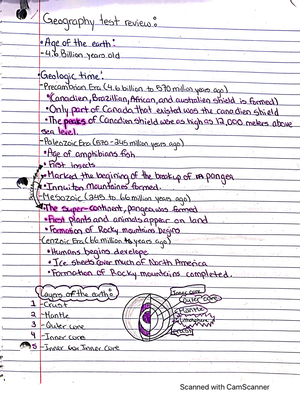 Geography test review:
• Age of the earth:
- 4.6 Billion years old
• Geologic time:
- Precambrian Era (4.6 billion to 570 million years ago)
• Canadien, Brazillian, African, and australian shield is formed)
• Only part of Canada that existed was the canadien shield
• The peaks of Canadien shield were as high as 12,000 meters above
sea level.
- Paleozoic Era (570 - 245 million years ago)
• Age of amphibians fish
• First insects
• Marked the beginning of the breakup of pangea
• Innuition mountains formed.
- Mesozoic (245 to 66 million years ago)
• The super-continent, pangea was formed
• First plants and animals appear on land
• Formation of Rocky mountains begins
- Cenzoic Era (66 million to years ago)
• Humans begins develope
• Ice sheets cover much of North America
• Formation of Rocky mountains completed.
Layers of the earth:
1 - Crust
2 - Mantle
3 - Outer core
4 - Inner core
5 - Inner Inner Core
Inner core
Outer core
Mantle
Crust
Scanned with CamScanner